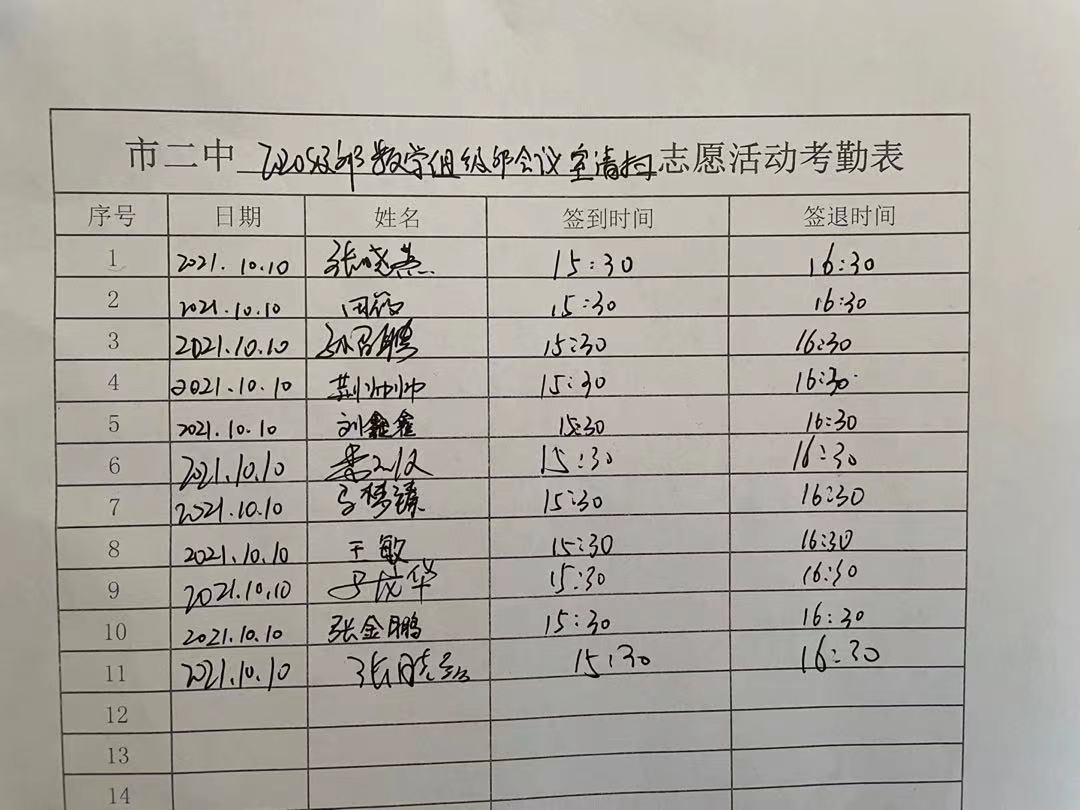 市二中 2020级部数学组级部会议室清扫 志愿活动考勤表
序号 日期 姓名 签到时间 签退时间
1 2021.10.10 张晓燕 15:30 16:30
2 2021.10.10 田 15:30 16:30
3 2021.10.10 15:30 16:30
4 2021.10.10 荆帅帅 15:30 16:30
5 2021.10.10 刘鑫鑫 15:30 16:30
6 2021.10.10 15:30 16:30
7 2021.10.10 马梦臻 15:30 16:30
8 2021.10.10 于敏 15:30 16:30
9 2021.10.10 15:30 16:30
10 2021.10.10 张金鹏 15:30 16:30
11 2021.10.10 15:30 16:30
12
13
14